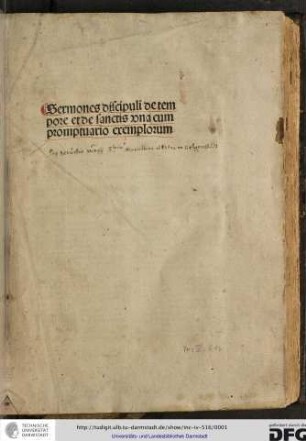 Sermones discipuli de tem
pore et de sanctis vna cum
promptuario exemplorum
TECHNISCHE
UNIVERSITÄT
DARMSTADT
http://tudigit.ulb.tu-darmstadt.de/show/inc-iv-516/0001
Universitäts- und Landesbibliothek Darmstadt
gefördert durch die
DFG